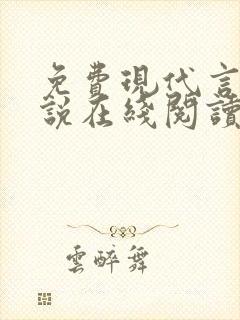 免費現代言
說在綫閱讀
雲醉舞